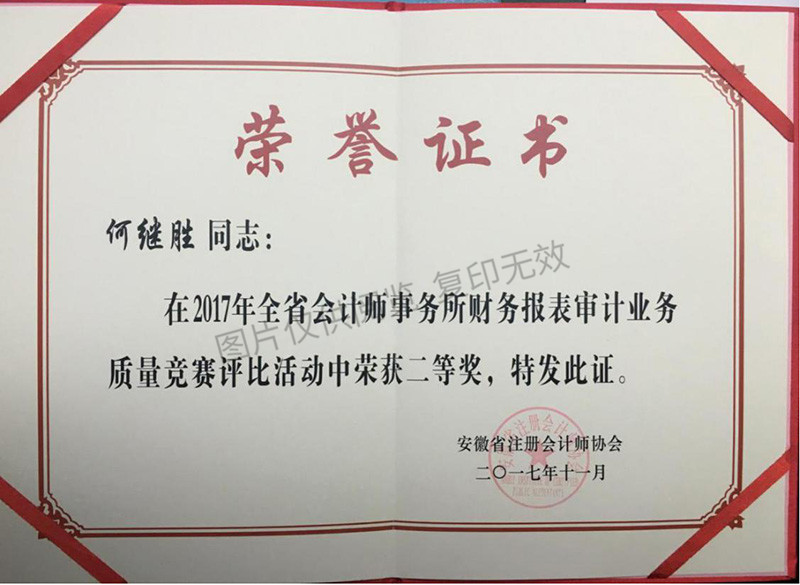 荣誉证书
何继胜 同志：
在2017年全省会计师事务所财务报表审计业务
质量竞赛评比活动中荣获二等奖，特发此证。
图片仅供阅览 复印无效
安徽省注册会计师协会
二〇一七年十一月
安徽省注册会计师协会